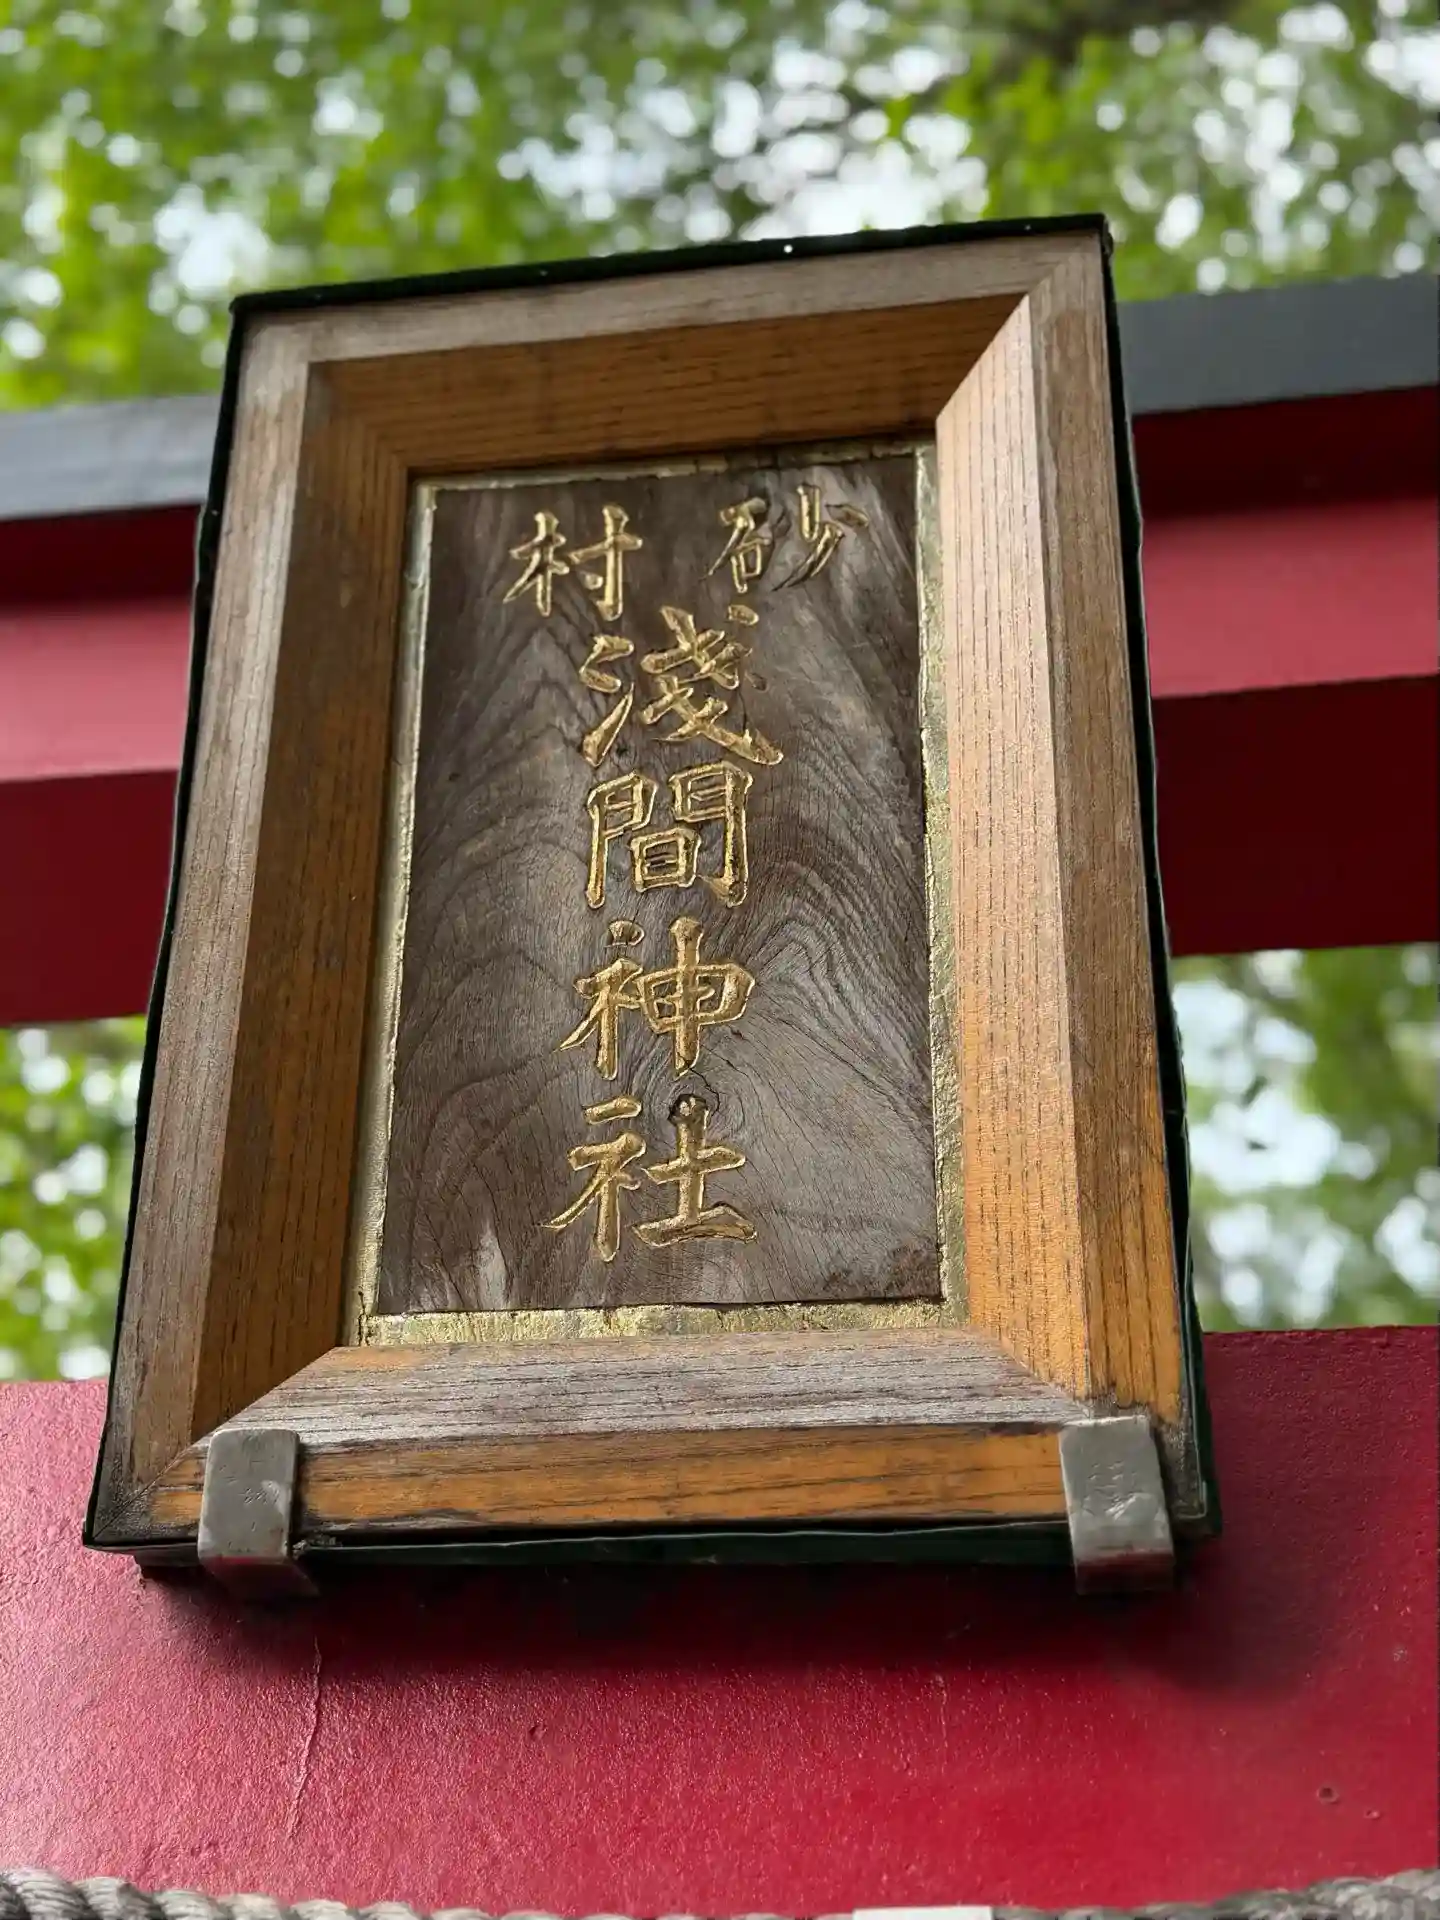 砂村
淺間神社